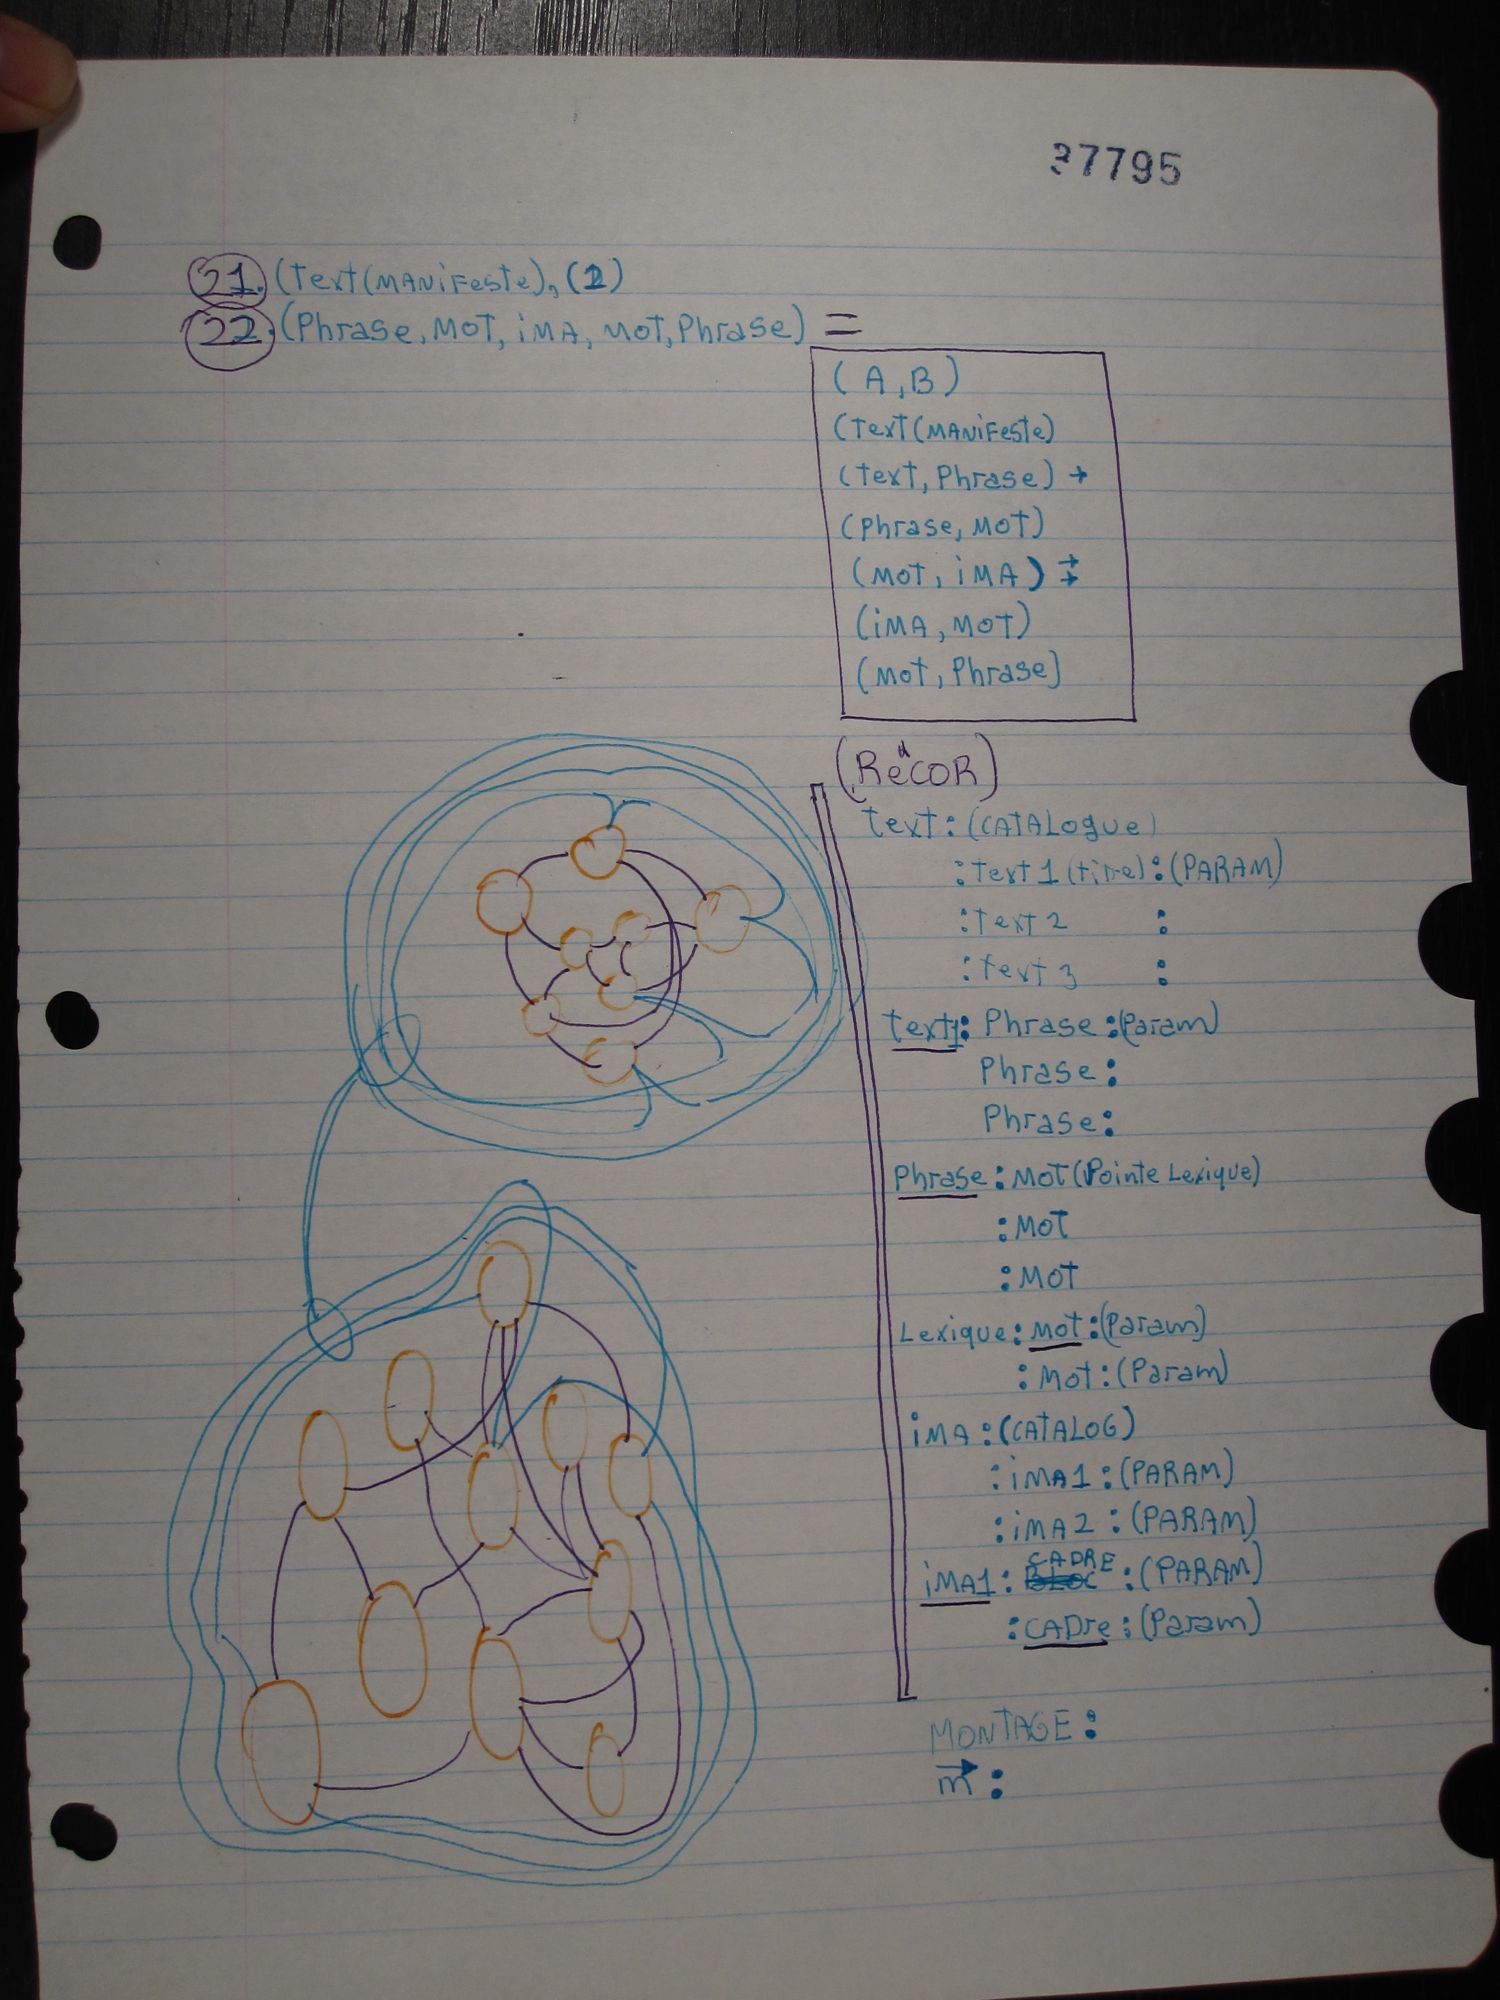 37795
21. (text(MANiFeste), (2)
22. (Phrase, MOT, iMA, MOT, Phrase) =
( A, B )
(text(MANiFeste)
(text, Phrase) →
(Phrase, MOT)
(MOT, iMA) ⇉
(iMA, MOT)
(MOT, Phrase]
(ReCOR)
text : (CATALogue)
: text 1 (titre) : (PARAM)
: text 2 :
: text 3 :
text1 : Phrase : (Param)
Phrase :
Phrase :
Phrase : MOT (Pointe Lexique)
: MOT
: MOT
Lexique : MOT : (Param)
: MOT : (Param)
iMA : (CATALOG)
: iMA1 : (PARAM)
: iMA2 : (PARAM)
iMA1 : CADRE : (PARAM)
: CADre : (Param)
MONTAGE :
m :